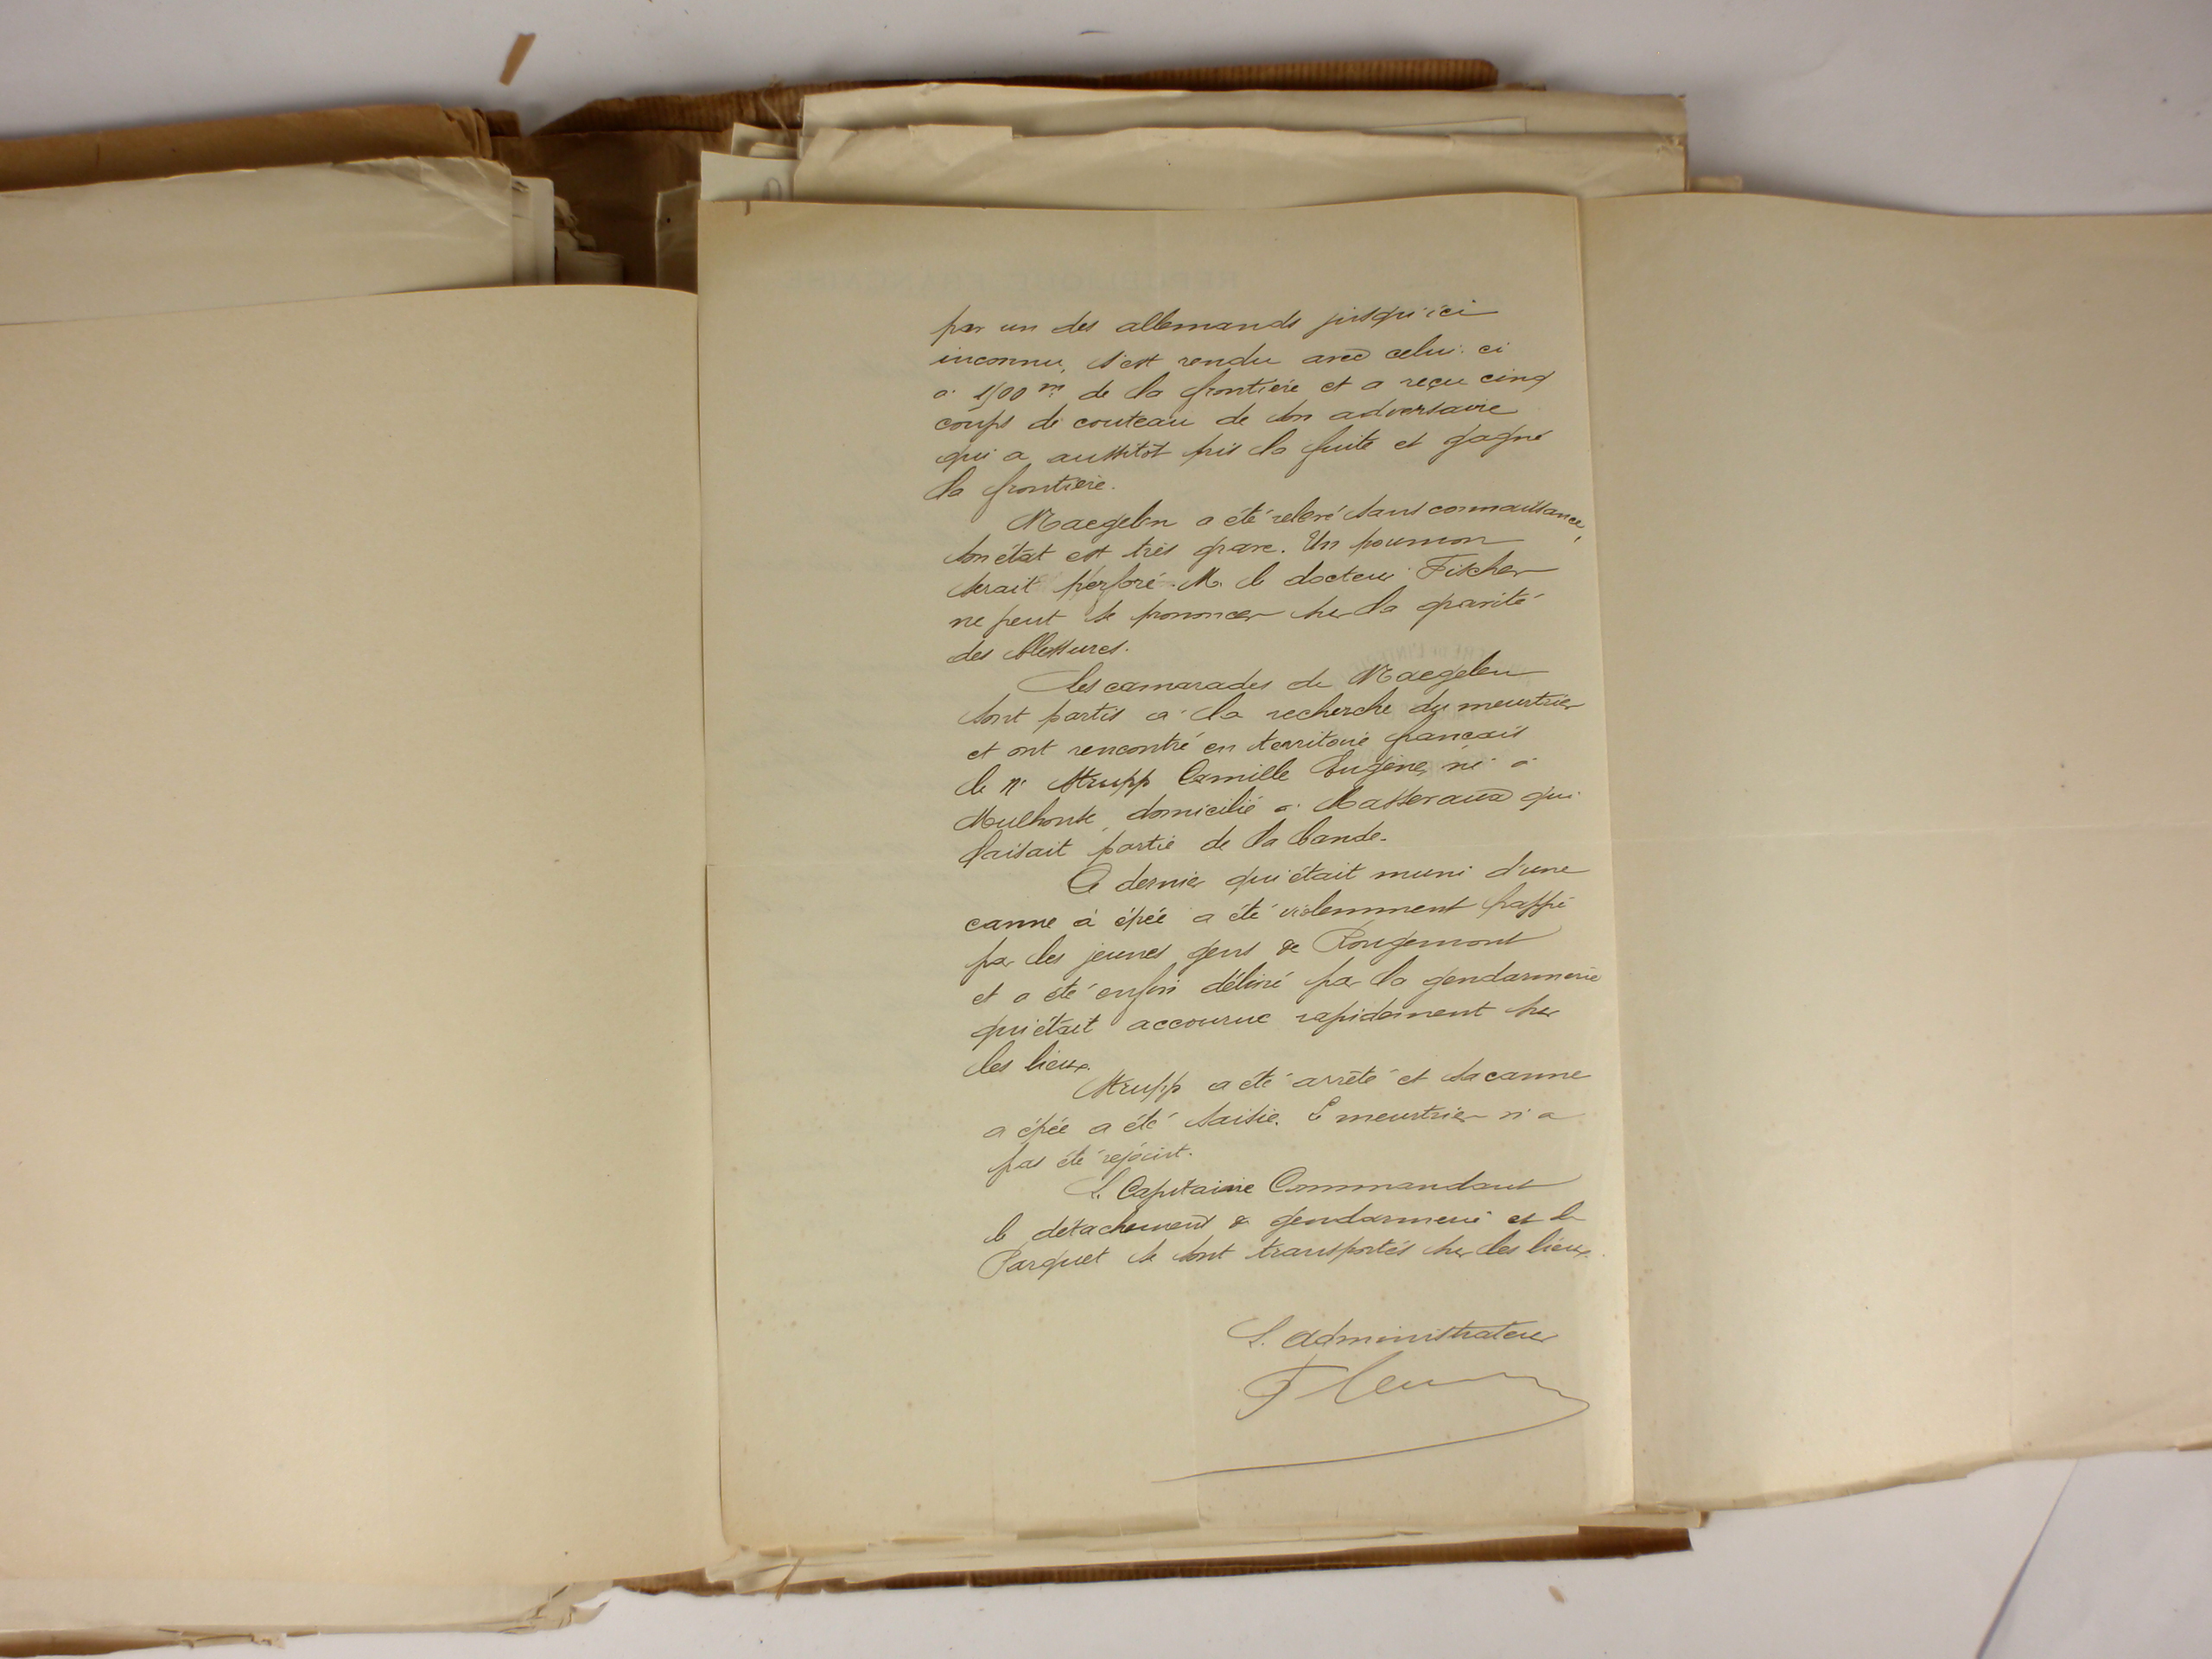 par un des allemands jusqu'ici
inconnu, s'est rendu avec celui-ci
à 1500 m. de la frontière et a reçu cinq
coups de couteau de son adversaire
qui a aussitôt pris la fuite et gagné
la frontière.
Naegelen a été relevé sans connaissance,
son état est très grave. Un poumon
serait perforé. M. le docteur Fischer
ne peut se prononcer sur la gravité
des blessures.
Les camarades de Naegelen
sont partis à la recherche du meurtrier
et ont rencontré en territoire français
le nᵉ Strupp Camille Eugène, né à
Mulhouse, domicilié à Massevaux qui
faisait partie de la bande.
Ce dernier qui était muni d'une
canne à épée a été violemment frappé
par les jeunes gens de Rougemont
et a été enfin délivré par la gendarmerie
qui était accourue rapidement sur
les lieux.
Strupp a été arrêté et sa canne
à épée a été saisie. Le meurtrier n'a
pas été rejoint.
Le Capitaine Commandant
le détachement de gendarmerie et le
Parquet se sont transportés sur les lieux.
L'administrateur